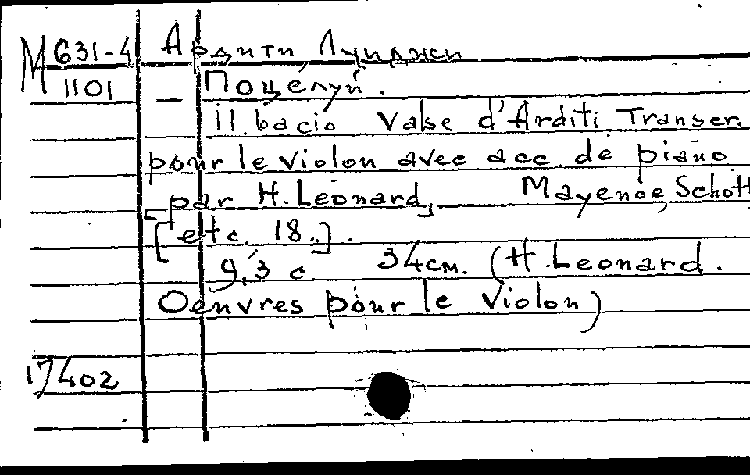 М 631-4 Ардити, Луиджи
1101 — Поцелуй.
il bacio Valse d'Arditi. Transcr.
pour le violon avec acc. de piano
par H. Léonard, Mayence, Schott
[etc. 18..].
9,3 с 34см. (H. Leonard.
Oenvres pour le violon)
17402